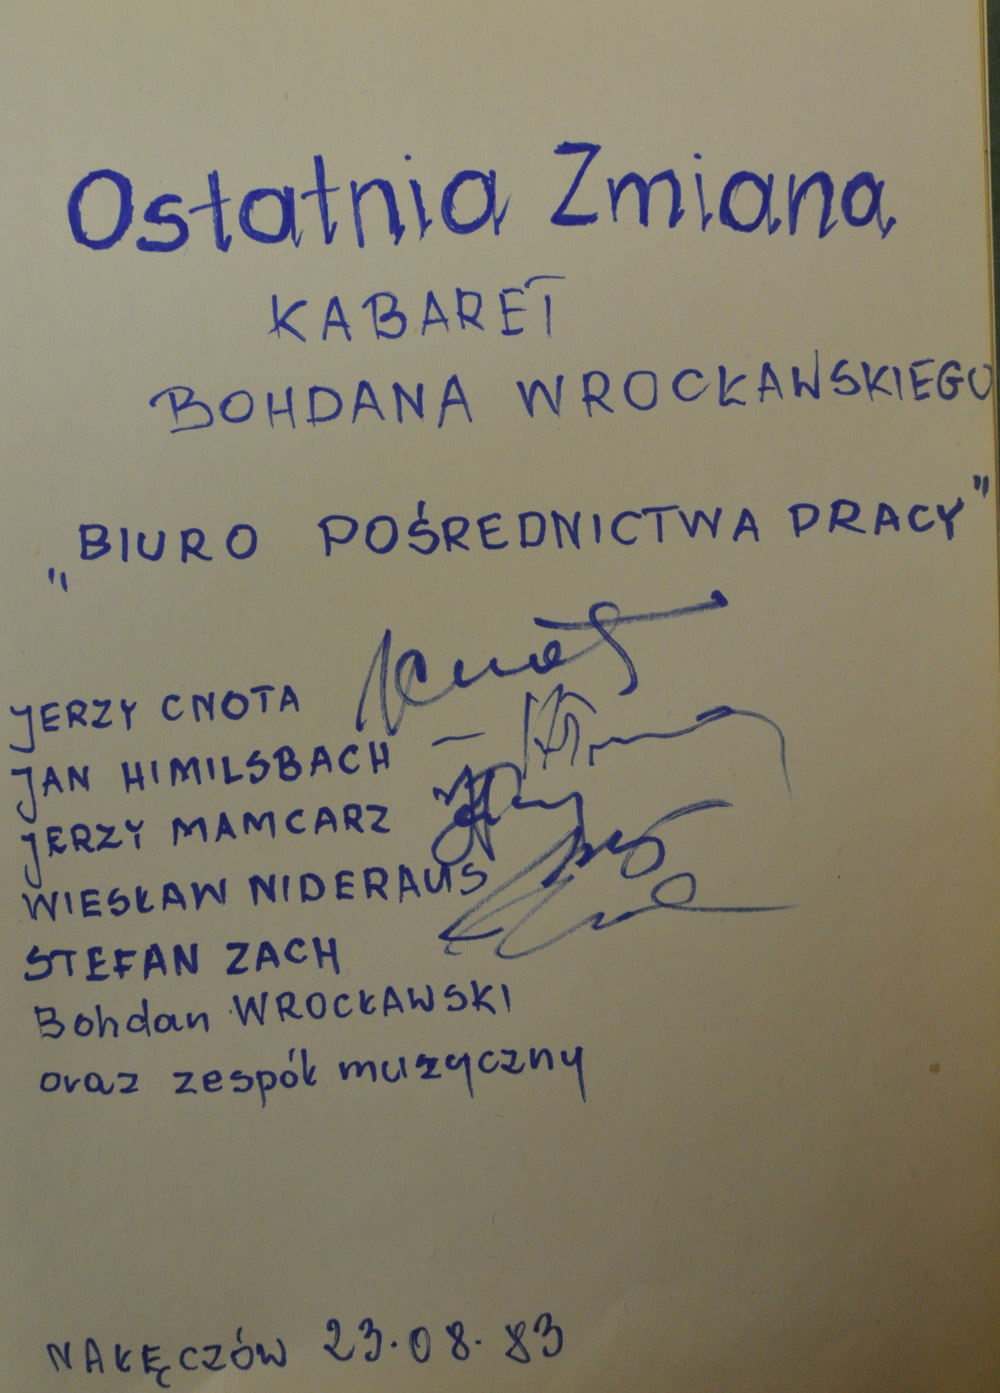 Ostatnia Zmiana
KABARET
BOHDANA WROCŁAWSKIEGO
„BIURO POŚREDNICTWA PRACY”
JERZY CNOTA
JAN HIMILSBACH
JERZY MAMCARZ
WIESŁAW NIDERAUS
STEFAN ZACH
Bohdan WROCŁAWSKI
oraz zespół muzyczny
NAŁĘCZÓW 23.08.83